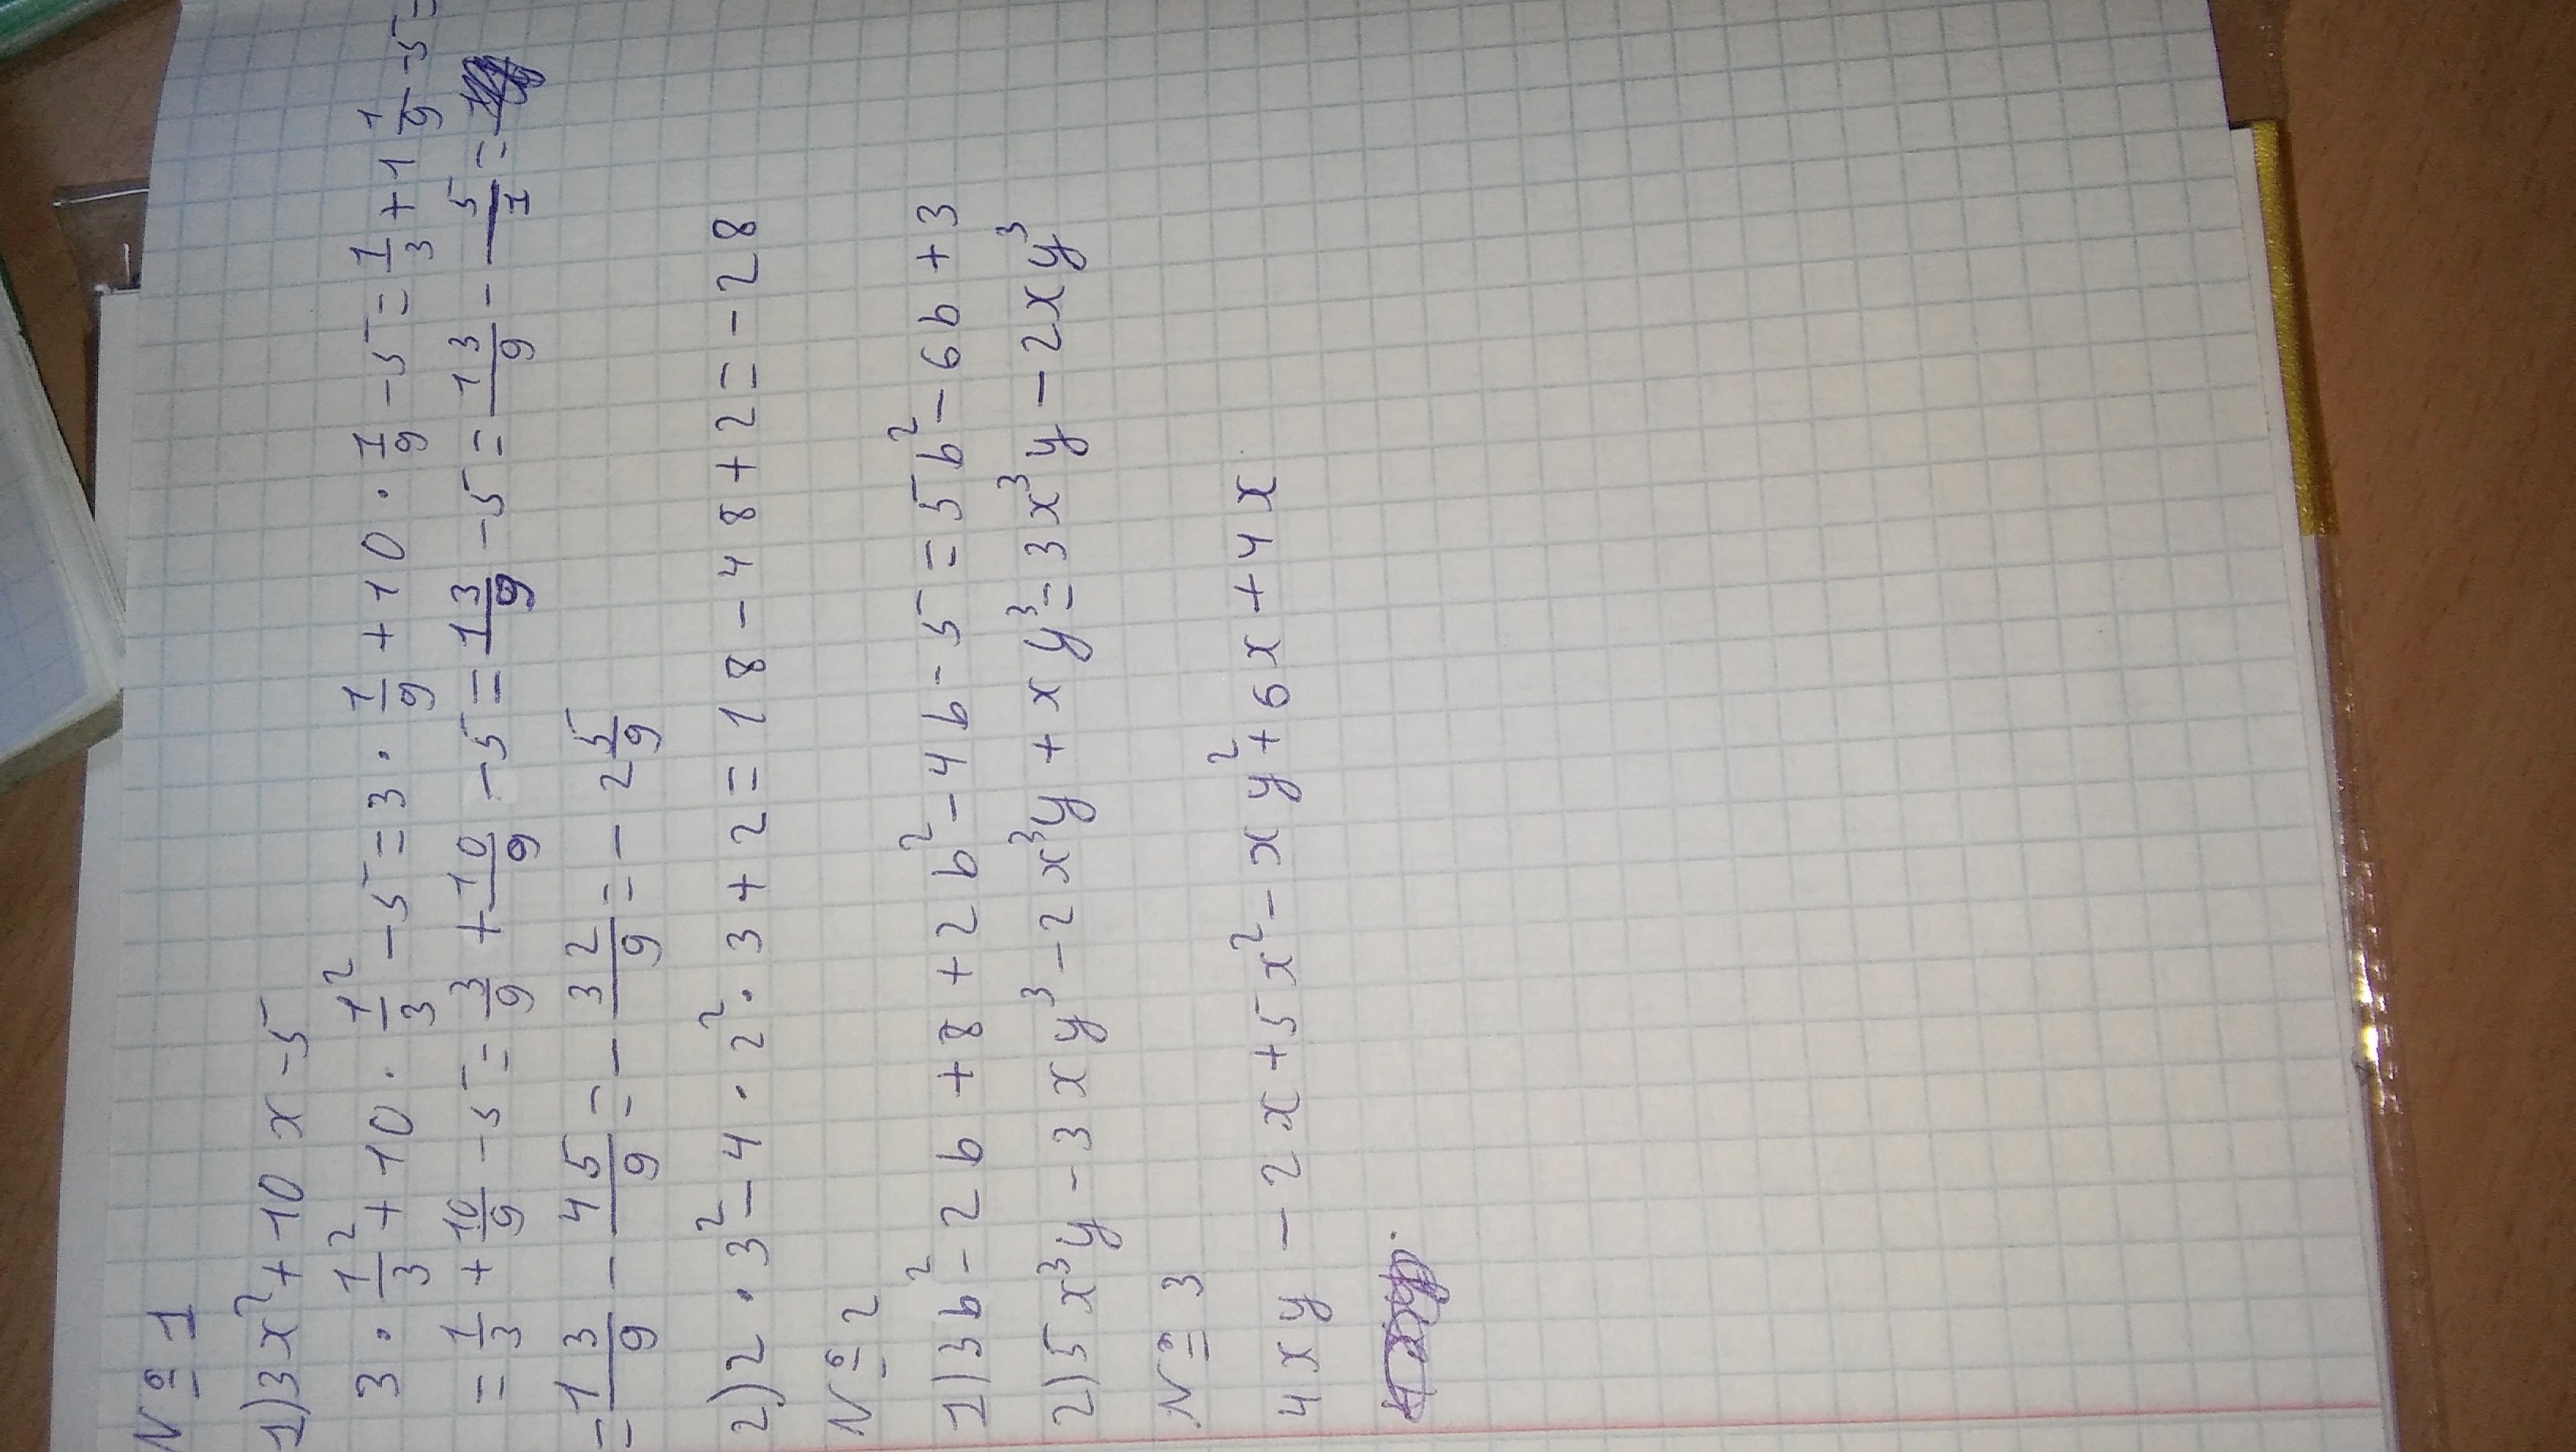 № 1
1) 3x² + 10x - 5
3 · 1/3² + 10 · 1/3² - 5 = 3 · 1/9 + 10 · 1/9 - 5 = 1/3 + 1 1/9 - 5 =
= 1/3 + 10/9 - 5 = 3/9 + 10/9 - 5 = 13/9 - 5 = 13/9 - 5/1 =
= 13/9 - 45/9 = - 32/9 = - 2 5/9
2) 2 · 3² - 4 · 2² · 3 + 2 = 18 - 48 + 2 = - 28
№ 2
1) 3b² - 2b + 8 + 2b² - 4b - 5 = 5b² - 6b + 3
2) 5x³y - 3xy³ - 2x³y + xy³ = 3x³y - 2xy³
№ 3
4xy - 2x + 5x² - xy² + 6x + 4x